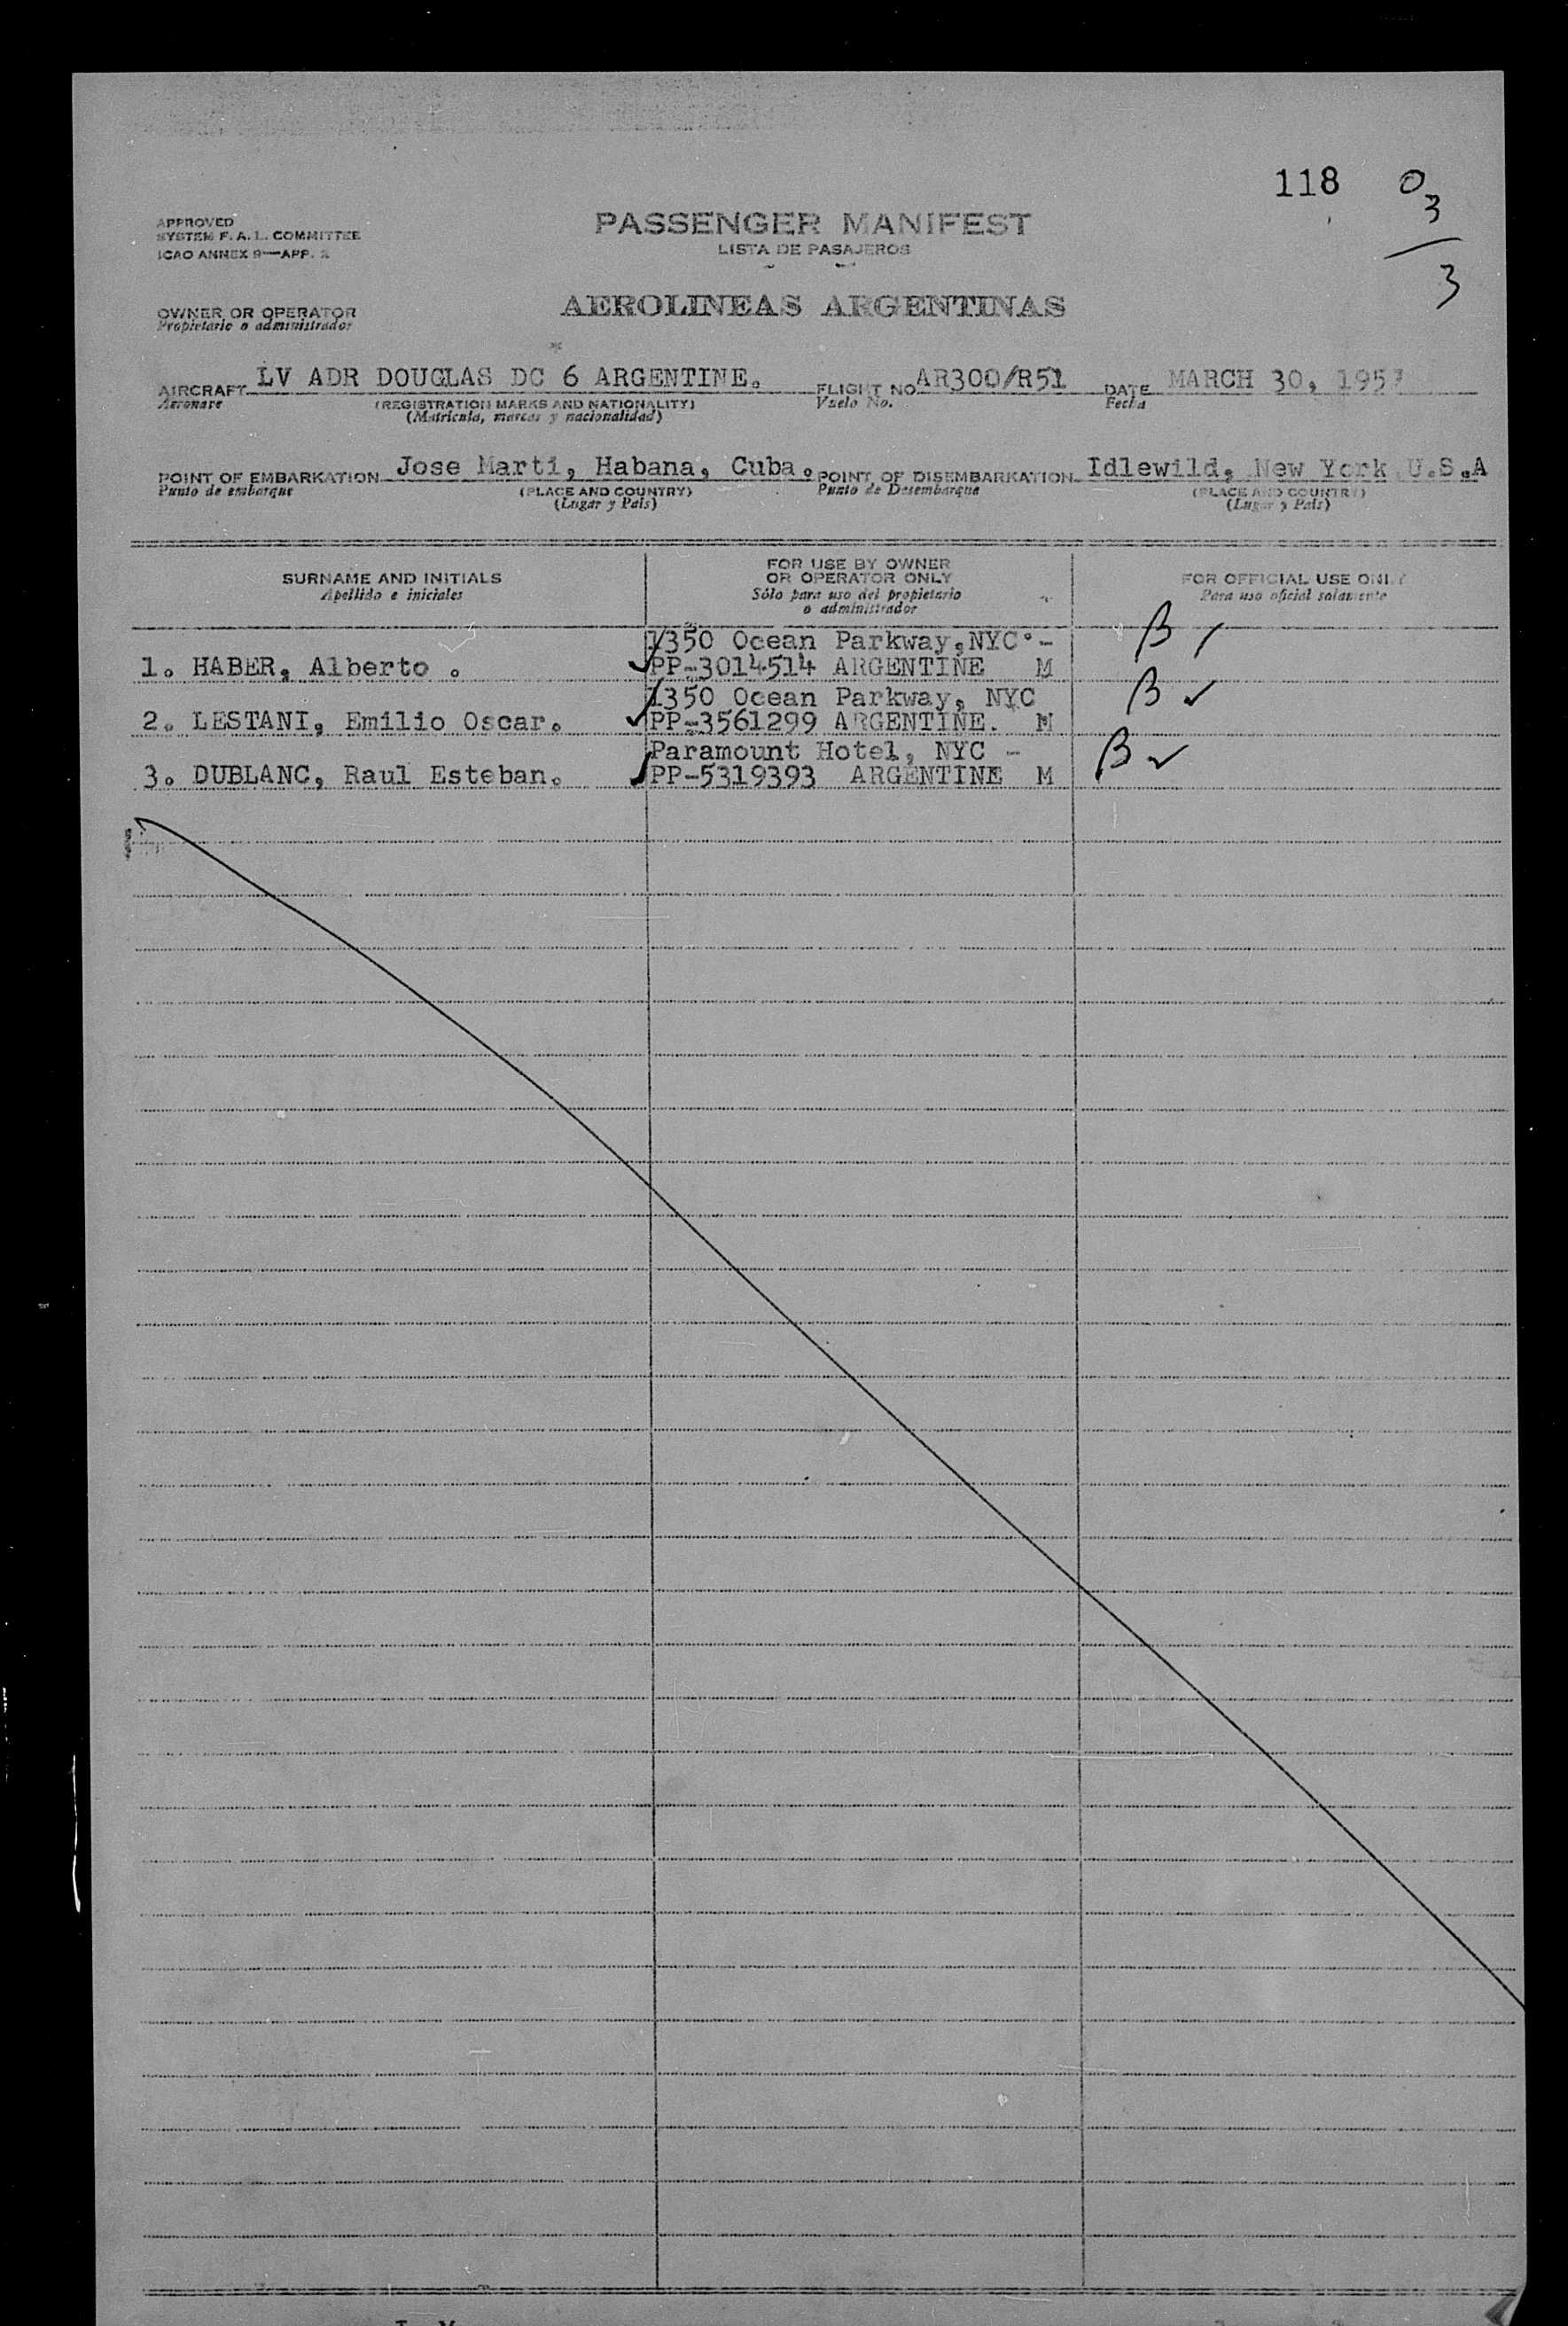 118 0
3
3
APPROVED
SYSTEM F. A. L. COMMITTEE
ICAO ANNEX 9—APP. 2
PASSENGER MANIFEST
LISTA DE PASAJEROS
OWNER OR OPERATOR
Propietario o administrador
AEROLINEAS ARGENTINAS
AIRCRAFT LV ADR DOUGLAS DC 6 ARGENTINE. FLIGHT NO AR300/R51 DATE MARCH 30, 1957
Aeronave (REGISTRATION MARKS AND NATIONALITY) Vuelo No. Fecha
(Matricula, marcas y nacionalidad)
POINT OF EMBARKATION Jose Marti, Habana, Cuba. POINT OF DISEMBARKATION Idlewild, New York U.S.A
Punto de embarque (PLACE AND COUNTRY) Punto de Desembarque (PLACE AND COUNTRY)
(Lugar y País) (Lugar y País)
SURNAME AND INITIALS
Apellido e iniciales
FOR USE BY OWNER
OR OPERATOR ONLY
Sólo para uso del propietario
o administrador
FOR OFFICIAL USE ONLY
Para uso oficial solamente
1350 Ocean Parkway, NYC.- B
1. HABER, Alberto . PP-3014514 ARGENTINE M
1350 Ocean Parkway, NYC B
2. LESTANI, Emilio Oscar. PP-3561299 ARGENTINE. M
Paramount Hotel, NYC - B
3. DUBLANC, Raul Esteban. PP-5319393 ARGENTINE M